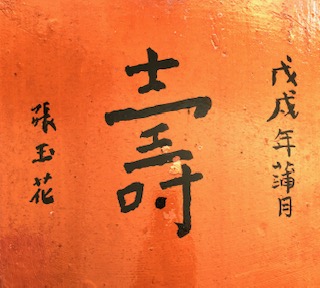 戊戌年蒲月
壽
張玉花